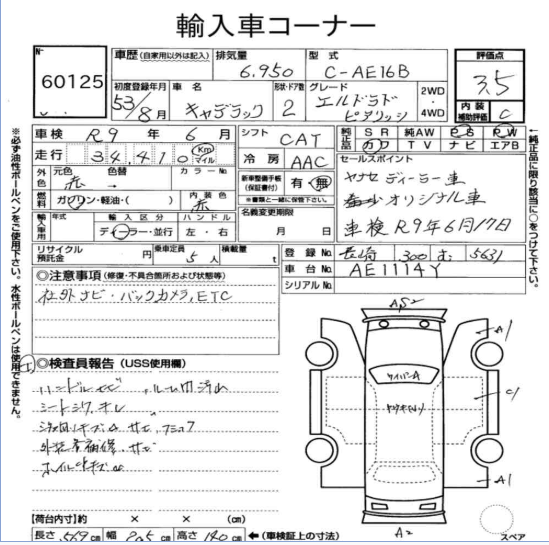 輸入車コーナー
No 60125
車歴 (自家用以外は記入)
排気量 6,950
型式 C-AE16B
評価点 3.5
内装補助評価 C
初度登録年月 53/8月
車名 キャデラック
形状・ドア数 2
グレード エルドラド ビアリッツ
2WD・4WD
車検 R9年6月
シフト CAT
純正品 SR 純AW PS PW
カワ TV ナビ エアB
走行 34,410 Km マイル
冷房 AAC
セールスポイント
ヤナセ ディーラー車
オリジナル車
車検 R9年6月17日
外色 元色 赤 色替 カラーNo
燃料 ガソリン・軽油・( ) 内装色 赤
新車整備手帳(保証書付) 有・無
※書類と一緒に保管して下さい。
輸入車用 年式 輸入区分 ハンドル
ディーラー・並行 左・右
名義変更期限
月 日
リサイクル預託金 円
乗車定員 5人
積載量 t
登録No. 長崎 300 す 5631
車台No. AE1114Y
シリアルNo.
◎注意事項 (修復・不具合箇所および状態等)
社外ナビ・バックカメラ,ETC
◎検査員報告 (USS使用欄)
シートシワ オレ
ホイルキズ
※必ず油性ボールペンをご使用下さい。水性ボールペンは使用できません。
←純正品に限り該当に○をつけて下さい。
A2
A1
ワイパーA
A1
A2
【荷台内寸】約 × × (cm)
長さ 569 幅 205 高さ 140 cm ←(車検証上の寸法)
スペア